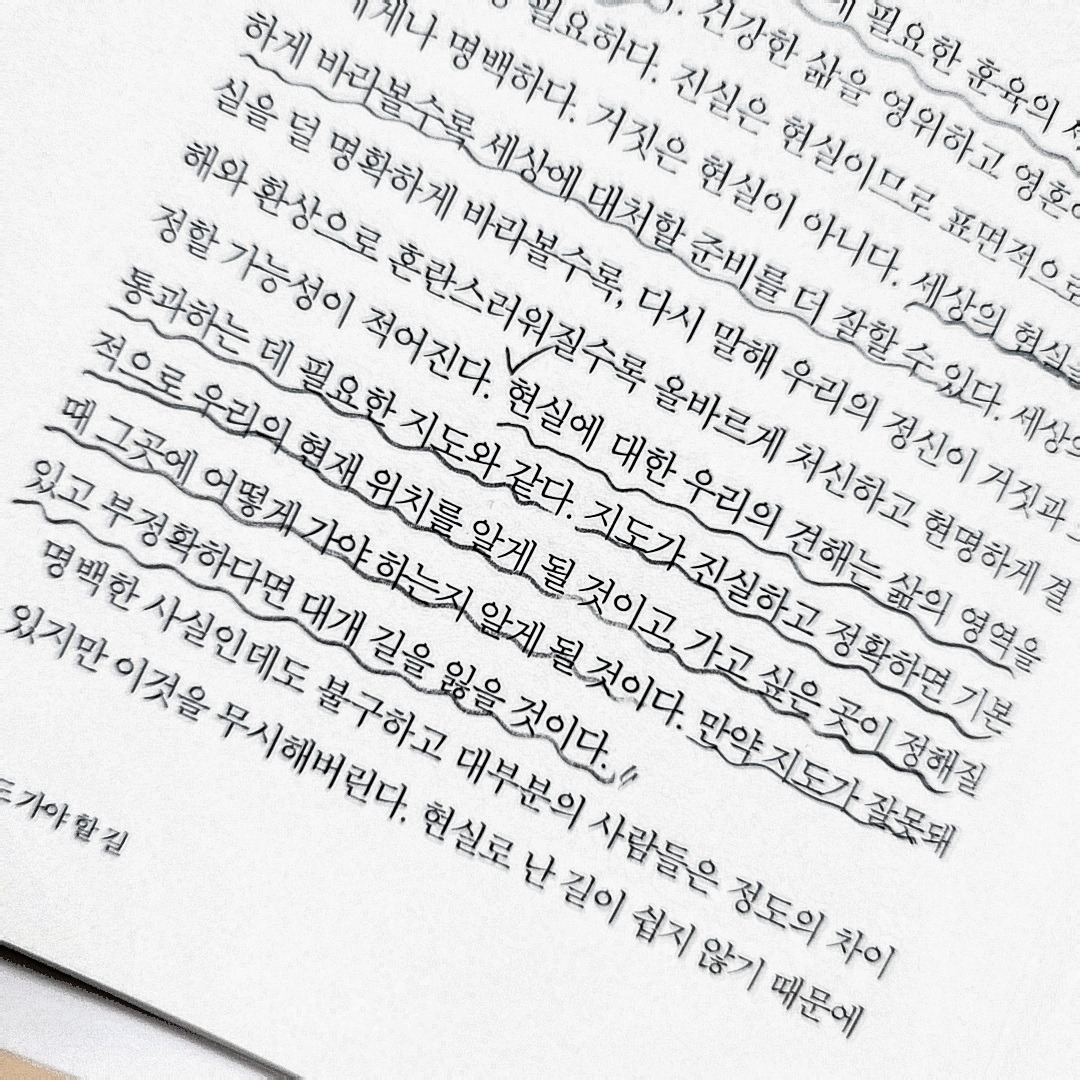 필요한 훈육의
필요하다. 건강한 삶을 영위하고 영혼
게나 명백하다. 진실은 현실이므로 표면적으로
거짓은 현실이 아니다. 세상의 현실을
하게 바라볼수록 세상에 대처할 준비를 더 잘할 수 있다. 세상의
실을 덜 명확하게 바라볼수록, 다시 말해 우리의 정신이 거짓과
해와 환상으로 혼란스러워질수록 올바르게 처신하고 현명하게 결
정할 가능성이 적어진다. 현실에 대한 우리의 견해는 삶의 영역을
통과하는 데 필요한 지도와 같다. 지도가 진실하고 정확하면 기본
적으로 우리의 현재 위치를 알게 될 것이고, 가고 싶은 곳이 정해질
때 그곳에 어떻게 가야 하는지 알게 될 것이다. 만약 지도가 잘못돼
있고 부정확하다면 대개 길을 잃을 것이다.
명백한 사실인데도 불구하고 대부분의 사람들은 정도의 차이
있지만 이것을 무시해버린다. 현실로 난 길이 쉽지 않기 때문에
가야 할 길